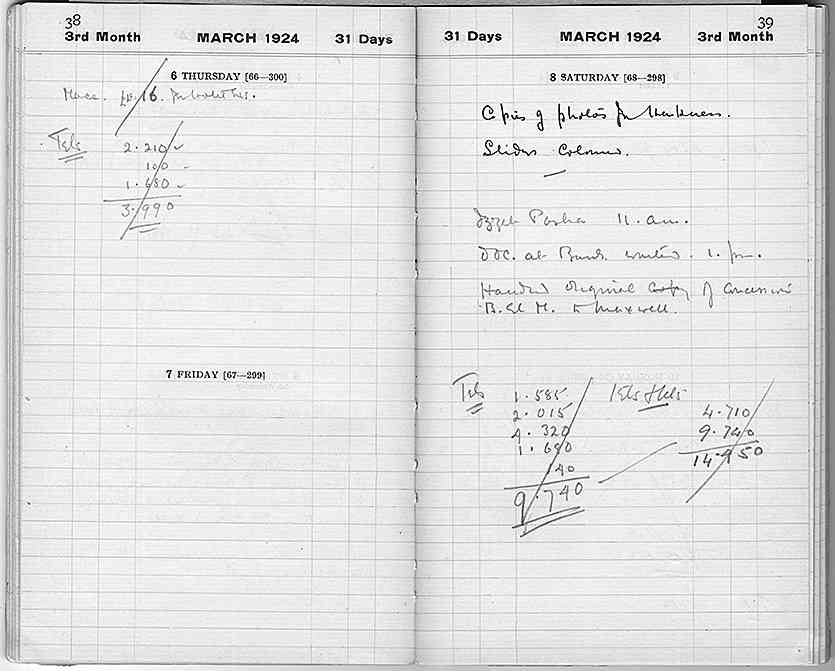 38
3rd Month MARCH 1924 31 Days
6 THURSDAY [66—300]
Mace. LE. 16.
Tels 2.210
100
1.680
3.990
7 FRIDAY [67—299]
39
31 Days MARCH 1924 3rd Month
8 SATURDAY [68—298]
Copies of photos for
Slides Coloured.
Izzet Pasha 11. a.m.
at 1. pm.
Handed Original Copy of Concession
B. el M. to Maxwell.
Tels
1.585
2.015
4.320
1.680
140
9.740
Tels
4.710
9.740
14.450